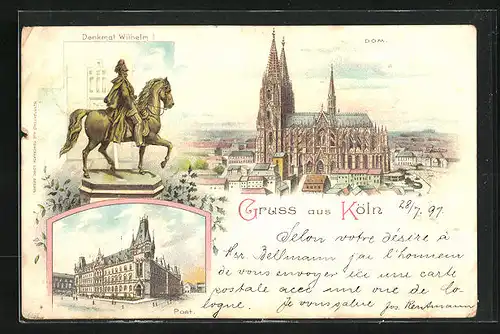 Denkmal Wilhelm I
DOM.
Gruss aus Köln
28/7.97
Selon votre désire à
Hr. Bellmann j'ai l'honneur
de vous envoyer ici une carte
postale avec une vue de Co-
logne. Je vous salue Jos. Rentmann
Post.